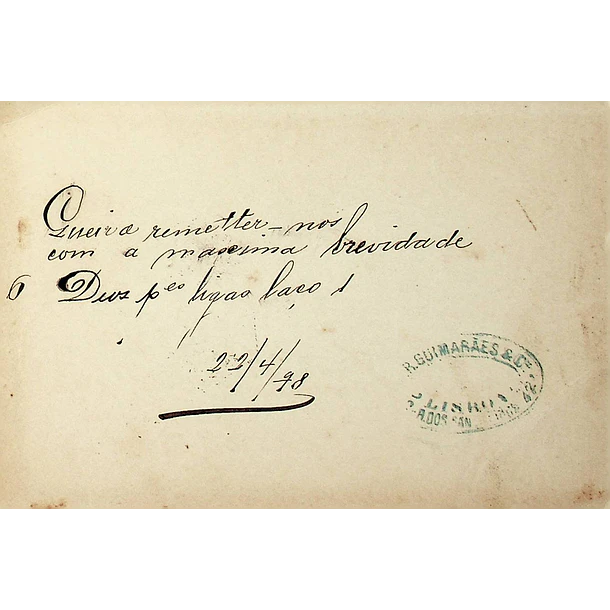 Queira remetter-nos
com a maxima brevidade
6 Duz p.es ligas laço 1
22/4/98
R. GUIMARÃES & Ca
LISBOA
R. DOS